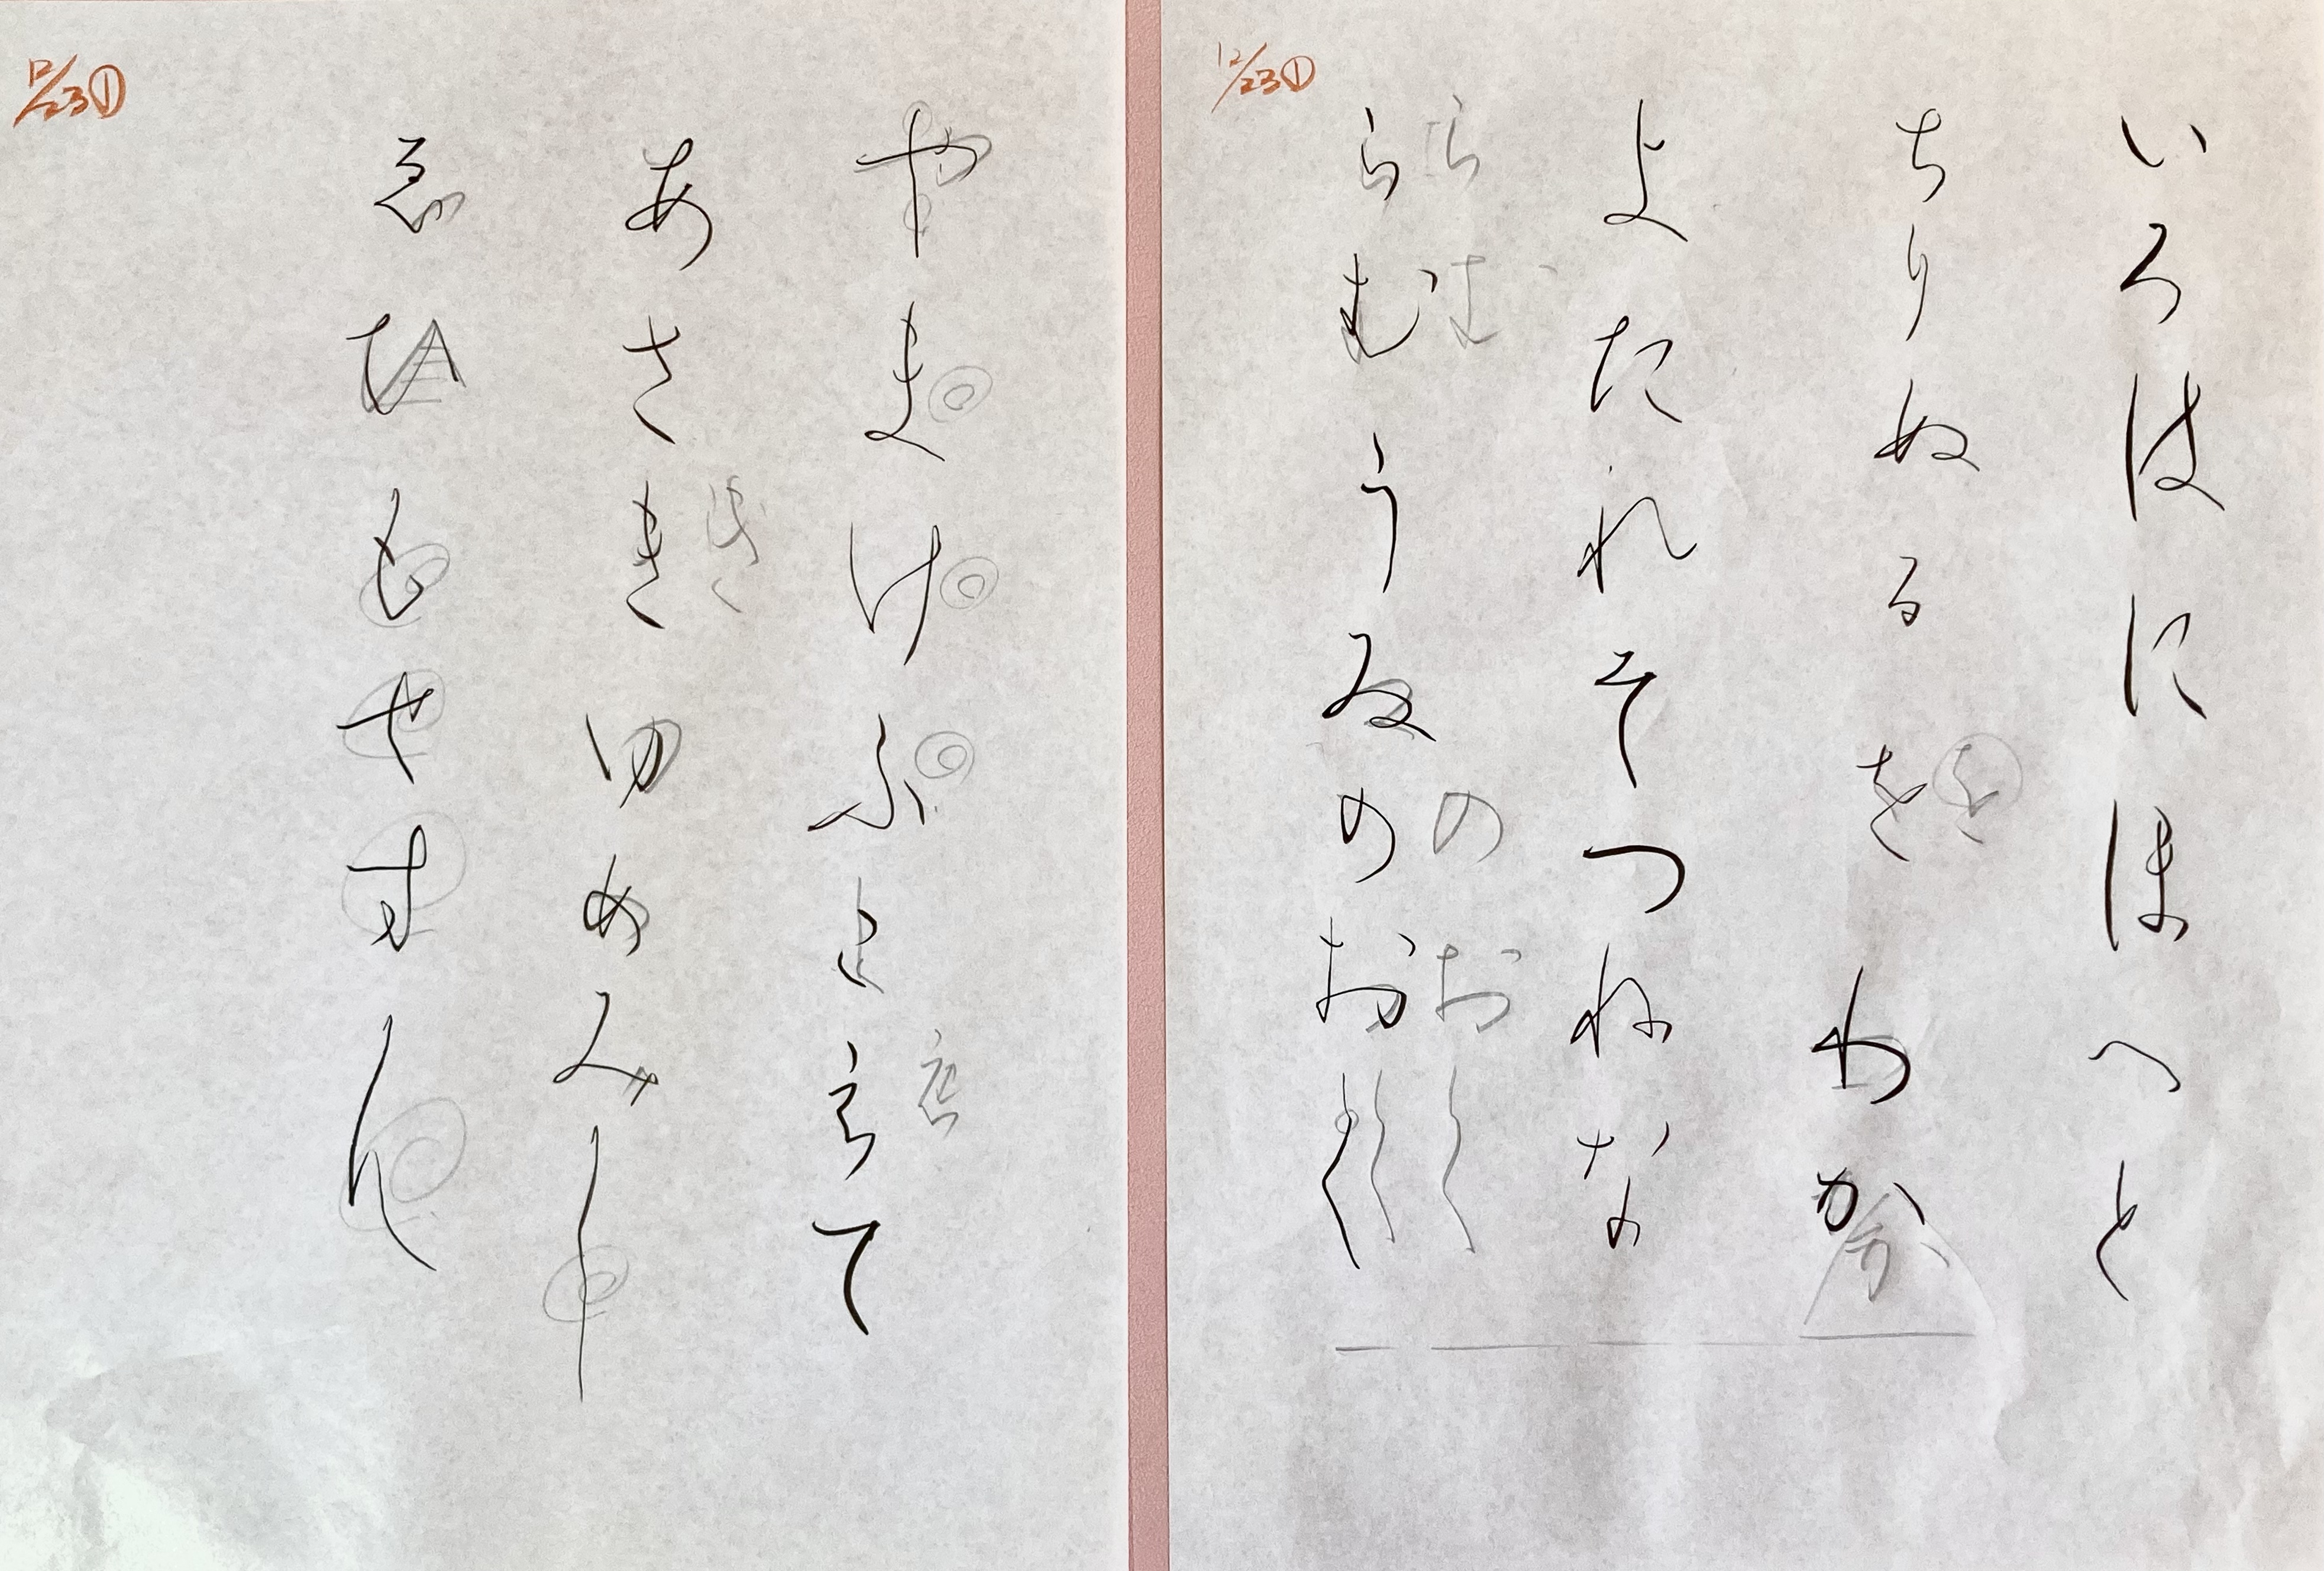 12/23①
いろはにほへと
ちりぬるをわか
を
か
よたれそつねな
らむ のおく
らむうゐのおく
12/23①
やまけふこえて
え
あさきゆめみし
き
ゑひもせすん